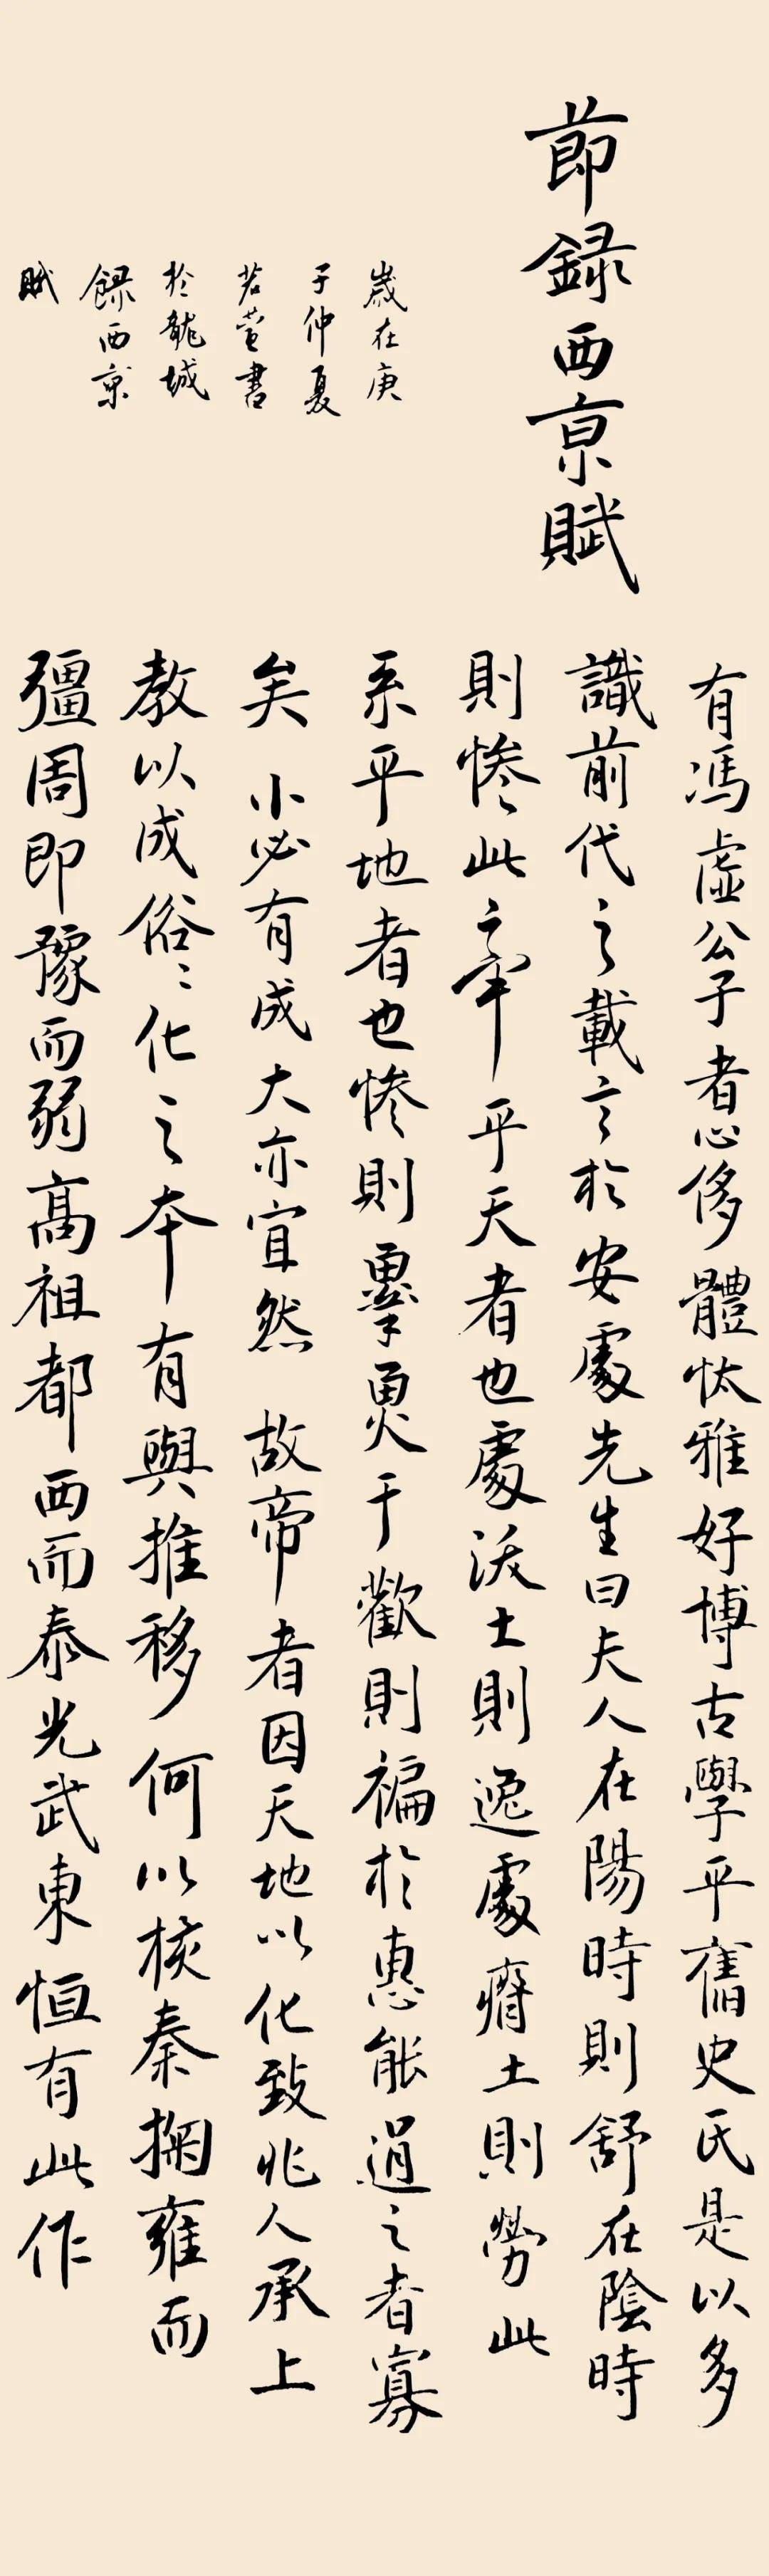 節録西京賦
有馮虛公子者心侈體忲雅好博古學乎舊史氏是以多
識前代之載言於安處先生曰夫人在陽時則舒在陰時
則慘此牽乎天者也處沃土則逸處瘠土則勞此
系乎地者也慘則鮮于歡則褊於惠能違之者寡
矣小必有成大亦宜然故帝者因天地以化致兆人承上
教以成俗〻化之本有與推移何以核秦據雍而
彊周即豫而弱高祖都西而泰光武東恒有此作
歲在庚
子仲夏
若萱書
於龍城
錄西京
賦